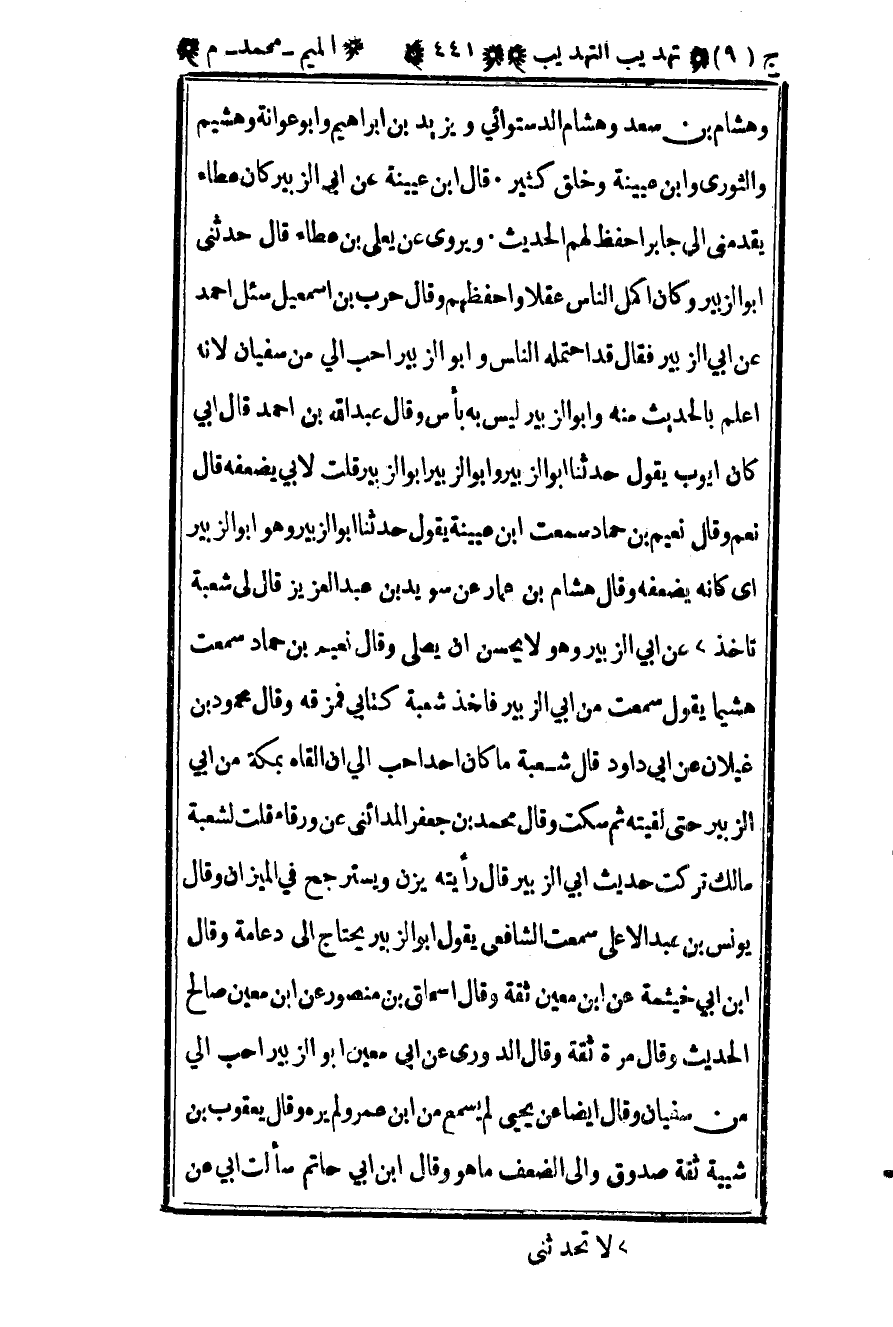 ج (٩) تهذيب التهذيب ٤٤١ الميم ـ محمد ـ م
وهشام بن سعد وهشام الدستوائي ويزيد بن ابراهيم وابوعوانة وهشيم
والثورى وابن عيينة وخلق كثير · قال ابن عيينة عن ابي الزبير كان عطاء
يقدمنى الى جابر احفظ لهم الحديث · ويروى عن يعلى بن عطاء قال حدثنى
ابوالزبير وكان اكمل الناس عقلا واحفظهم وقال حرب بن اسمعيل سئل احمد
عن ابي الزبير فقال قد احتمله الناس و ابو الزبير احب الي من سفيان لانه
اعلم بالحديث منه وابوالزبير ليس به بأس وقال عبدالله بن احمد قال ابي
كان ايوب يقول حدثنا ابوالزبير وابوالزبير ابوالزبير قلت لابي يضعفه قال
نعم وقال نعيم بن حماد سمعت ابن عيينة يقول حدثنا ابوالزبير وهو ابوالزبير
اى كانه يضعفه وقال هشام بن عمار عن سويد بن عبدالعزيز قال لى شعبة
تاخذ > عن ابي الزبير وهو لايحسن ان يصلى وقال نعيم بن حماد سمعت
هشيما يقول سمعت من ابي الزبير فاخذ شعبة كتابي فمزقه وقال محمود بن
غيلان عن ابي داود قال شعبة ما كان احد احب الي ان القاه بمكة من ابي
الزبير حتى لقيته ثم سكت وقال محمد بن جعفر المدائنى عن ورقاء قلت لشعبة
مالك تركت حديث ابي الزبير قال رأيته يزن ويسترجح في الميزان وقال
يونس بن عبدالاعلى سمعت الشافعى يقول ابوالزبير يحتاج الى دعامة وقال
ابن ابي خيثمة عن ابن معين ثقة وقال اسحاق بن منصور عن ابن معين صالح
الحديث وقال مرة ثقة وقال الدورى عن ابي معين ابو الزبير احب الي
من سفيان وقال ايضا عن يحيى لم يسمع من ابن عمرو لم يره وقال يعقوب بن
شيبة ثقة صدوق والى الضعف ماهو وقال ابن ابي حاتم سألت ابي عن
> لا تحدثنى